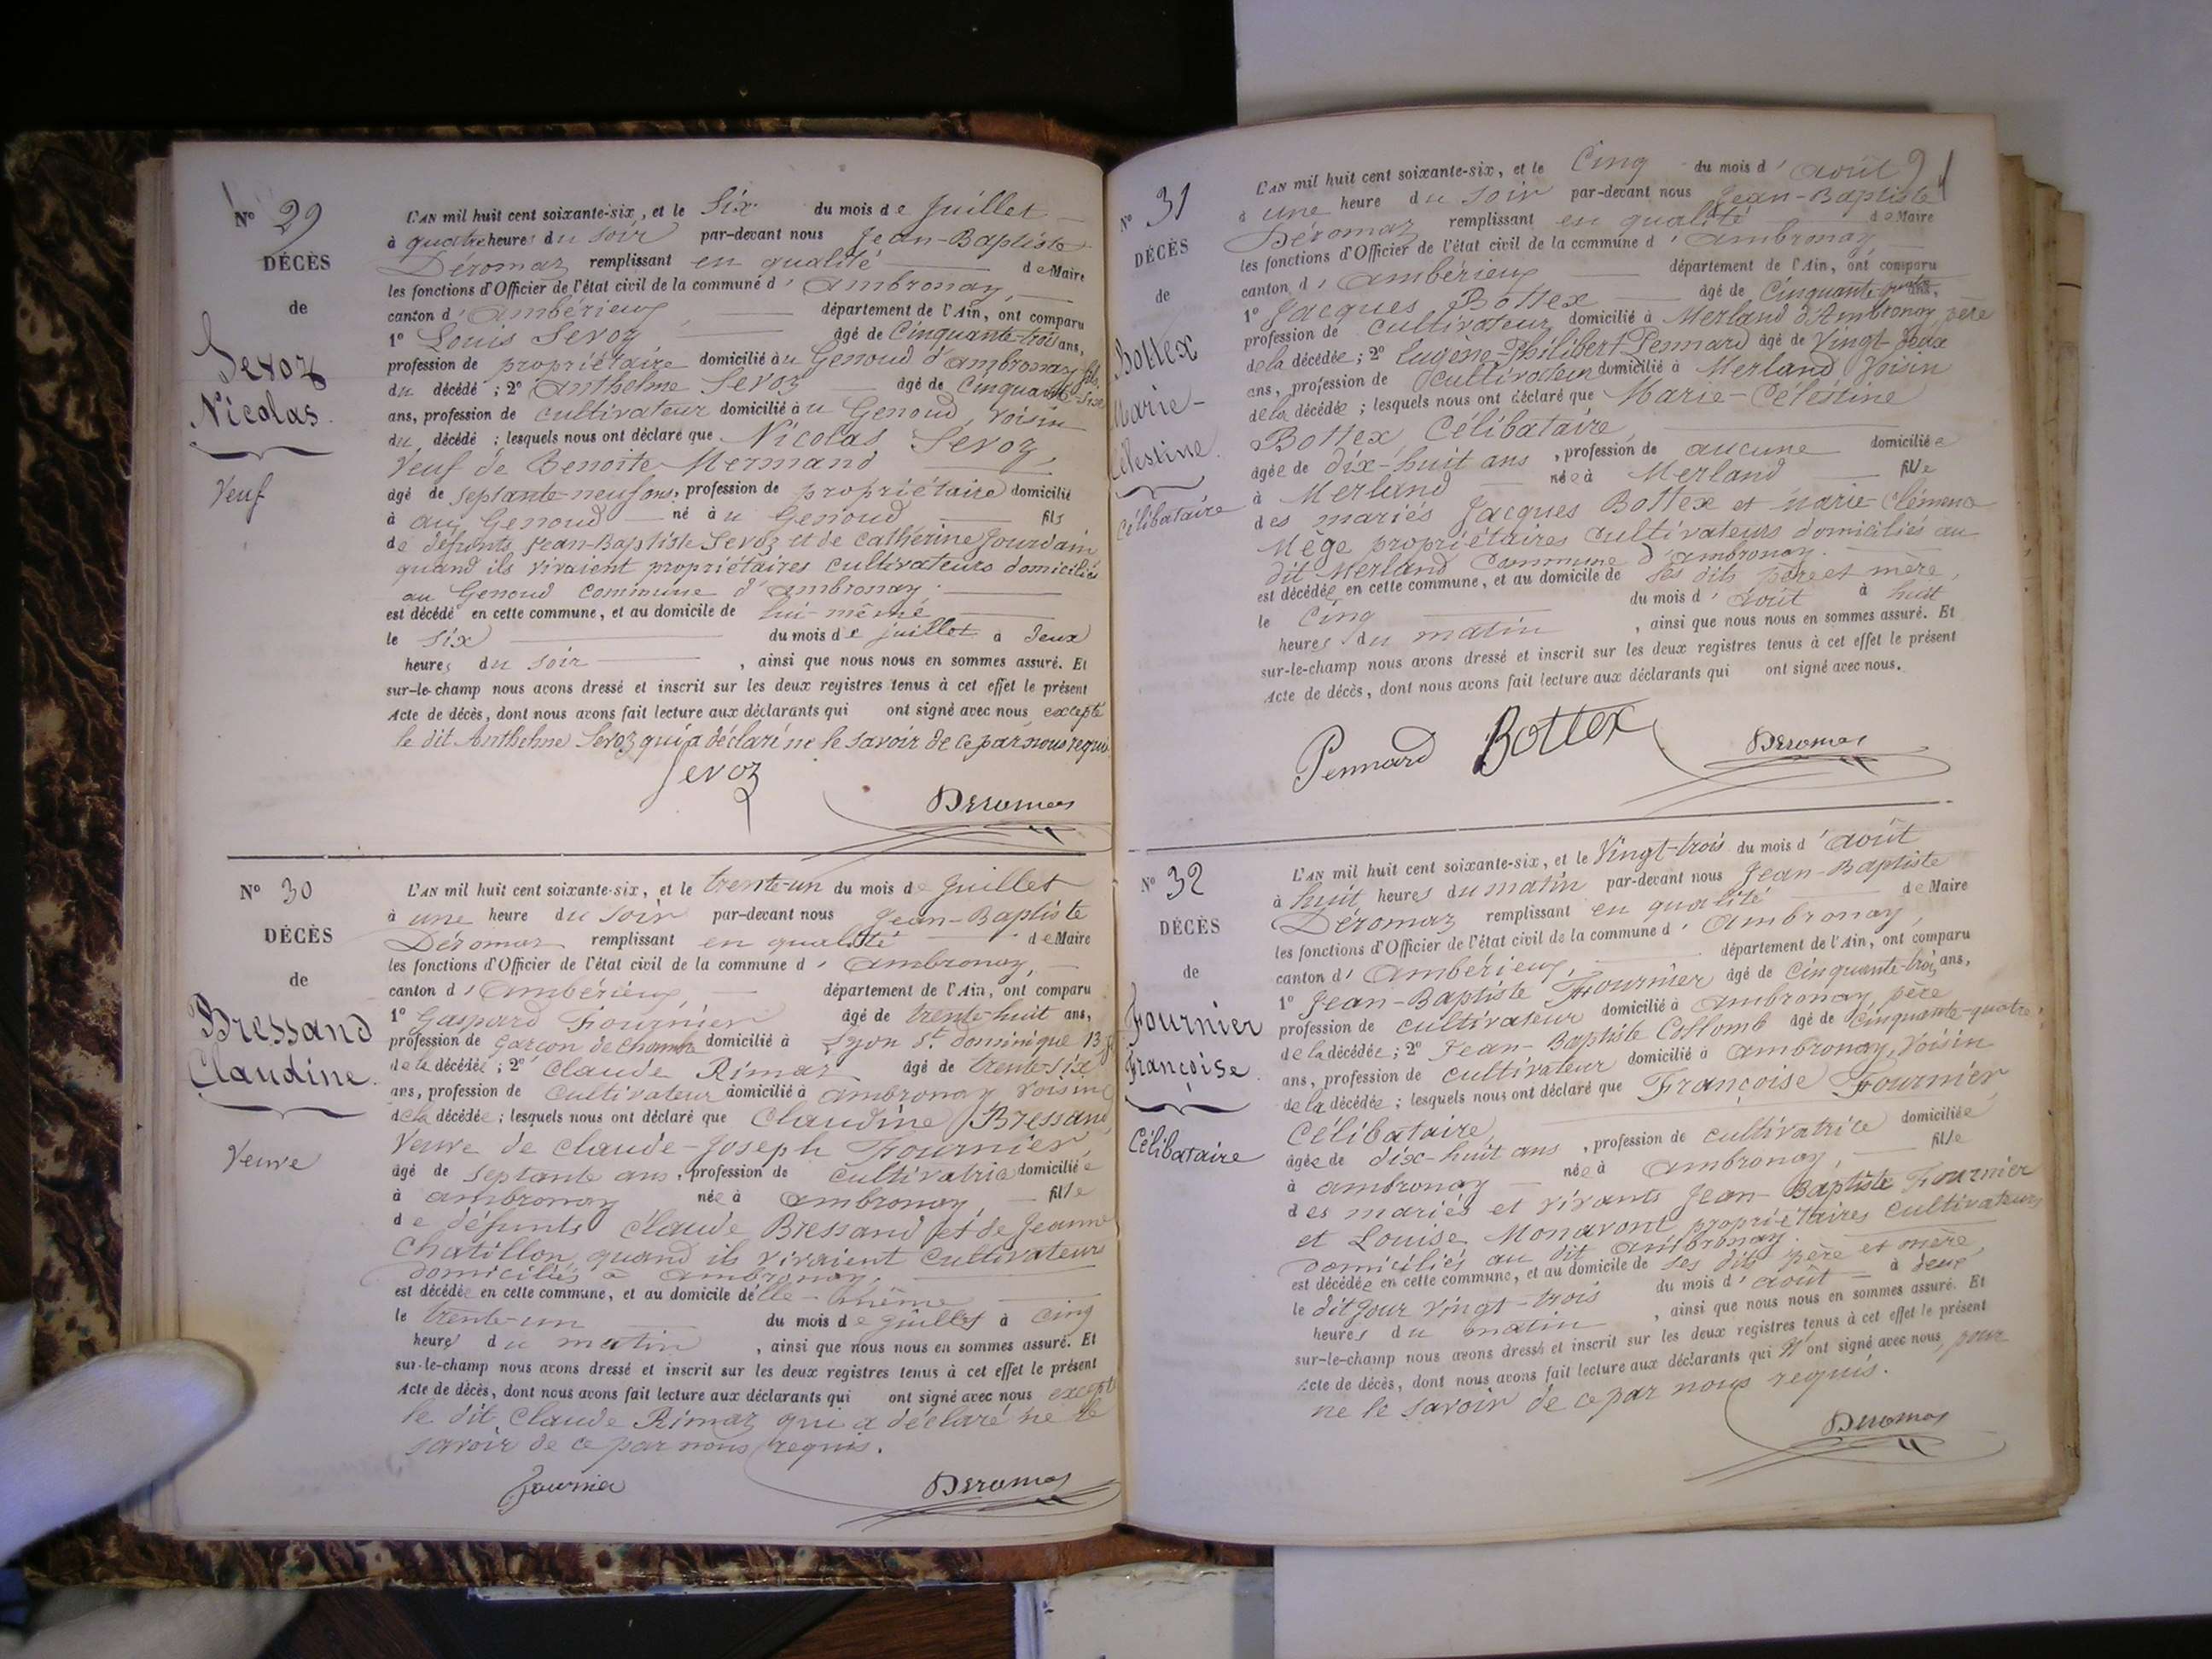 N° 29
DÉCÈS
de
Sevoz
Nicolas.
Veuf
L'AN mil huit cent soixante-six, et le Six du mois de Juillet
à quatre heures du Soir par-devant nous Jean-Baptiste
Déromaz remplissant en qualité de Maire
les fonctions d'Officier de l'état civil de la commune d'Ambronay,
canton d'Ambérieux, département de l'Ain, ont comparu
1° Louis Sevoz âgé de Cinquante-trois ans,
profession de propriétaire domicilié au Genoud d'Ambronay, fils
du décédé ; 2° Anthelme Sevoz âgé de Cinquante-six
ans, profession de Cultivateur domicilié au Genoud, voisin
du décédé ; lesquels nous ont déclaré que Nicolas Sevoz,
Veuf de Benoite Mermand
âgé de septante-neuf ans, profession de propriétaire domicilié
à au Genoud né au Genoud fils
de défunts Jean-Baptiste Sevoz et de Catherine Jourdain
quand ils vivaient propriétaires cultivateurs domiciliés
au Genoud Commune d'Ambronay.
est décédé en cette commune, et au domicile de lui-même
le six du mois de juillet à Deux
heures du Soir, ainsi que nous nous en sommes assuré. Et
sur-le-champ nous avons dressé et inscrit sur les deux registres tenus à cet effet le présent
Acte de décès, dont nous avons fait lecture aux déclarants qui ont signé avec nous excepté
le dit Anthelme Sevoz qui a déclaré ne le savoir de ce par nous requis
Sevoz
Deromas
N° 30
DÉCÈS
de
Bressand
Claudine.
Veuve
L'AN mil huit cent soixante-six, et le trente-un du mois de Juillet
à une heure du Soir par-devant nous Jean-Baptiste
Déromaz remplissant en qualité de Maire
les fonctions d'Officier de l'état civil de la commune d'Ambronay,
canton d'Ambérieux, département de l'Ain, ont comparu
1° Gaspard Fournier âgé de trente-huit ans,
profession de Garçon de chambre domicilié à Lyon St. Dominique 13
de la décédée ; 2° Claude Rimaz âgé de trente-six
ans, profession de Cultivateur domicilié à Ambronay Voisin
de la décédée ; lesquels nous ont déclaré que Claudine Bressand
Veuve de Claude-Joseph Fournier
âgé de septante ans, profession de Cultivatrice domiciliée
à Ambronay née à Ambronay, fille
de défunts Claude Bressand et de Jeanne
Chatillon quand ils vivaient Cultivateurs
domiciliés à Ambronay,
est décédée en cette commune, et au domicile d'elle-même
le trente-un du mois de juillet à Cinq
heures du matin, ainsi que nous nous en sommes assuré. Et
sur-le-champ nous avons dressé et inscrit sur les deux registres tenus à cet effet le présent
Acte de décès, dont nous avons fait lecture aux déclarants qui ont signé avec nous excepté
le dit Claude Rimaz qui a déclaré ne le
savoir de ce par nous requis.
Fournier
Deromas
N° 31
DÉCÈS
de
Bottex
Marie-
Célestine.
Célibataire
L'AN mil huit cent soixante-six, et le Cinq du mois d'Août
à une heure du Soir par-devant nous Jean-Baptiste
Déromaz remplissant en qualité de Maire
les fonctions d'Officier de l'état civil de la commune d'Ambronay,
canton d'Ambérieux département de l'Ain, ont comparu
1° Jacques Bottex âgé de Cinquante quatre ans,
profession de Cultivateur domicilié à Merland d'Ambronay père
de la décédée ; 2° Eugène-Philibert Pennard âgé de Vingt-Deux
ans, profession de Cultivateur domicilié à Merland Voisin
de la décédée ; lesquels nous ont déclaré que Marie-Célestine
Bottex Célibataire
âgée de dix-huit ans, profession de aucune domiciliée
à Merland née à Merland fille
des mariés Jacques Bottex et Marie-Clémence
Mège propriétaires cultivateurs domiciliés au
dit Merland Commune d'Ambronay.
est décédée en cette commune, et au domicile de ses dits père et mère,
le Cinq du mois d'Août à huit
heures du matin, ainsi que nous nous en sommes assuré. Et
sur-le-champ nous avons dressé et inscrit sur les deux registres tenus à cet effet le présent
Acte de décès, dont nous avons fait lecture aux déclarants qui ont signé avec nous.
Pennard Bottex Deromas
N° 32
DÉCÈS
de
Fournier
Françoise.
Célibataire
L'AN mil huit cent soixante-six, et le Vingt-trois du mois d'Août
à huit heures du matin par-devant nous Jean-Baptiste
Déromaz remplissant en qualité de Maire
les fonctions d'Officier de l'état civil de la commune d'Ambronay,
canton d'Ambérieux, département de l'Ain, ont comparu
1° Jean-Baptiste Fournier âgé de Cinquante-trois ans,
profession de cultivateur domicilié à Ambronay, père
de la décédée ; 2° Jean-Baptiste Collomb âgé de Cinquante-quatre
ans, profession de cultivateur domicilié à Ambronay, Voisin
de la décédée ; lesquels nous ont déclaré que Françoise Fournier
Célibataire,
âgée de dix-huit ans, profession de cultivatrice domiciliée
à Ambronay née à Ambronay, fille
des mariés et vivants Jean-Baptiste Fournier
et Louise Monavont propriétaires cultivateurs
Domiciliés au dit Ambronay.
est décédée en cette commune, et au domicile de ses dits père et mère,
le dit jour vingt-trois du mois d'Août à deux
heures du matin, ainsi que nous nous en sommes assuré. Et
sur-le-champ nous avons dressé et inscrit sur les deux registres tenus à cet effet le présent
Acte de décès, dont nous avons fait lecture aux déclarants qui n'ont signé avec nous, pour
ne le savoir de ce par nous requis.
Deromas